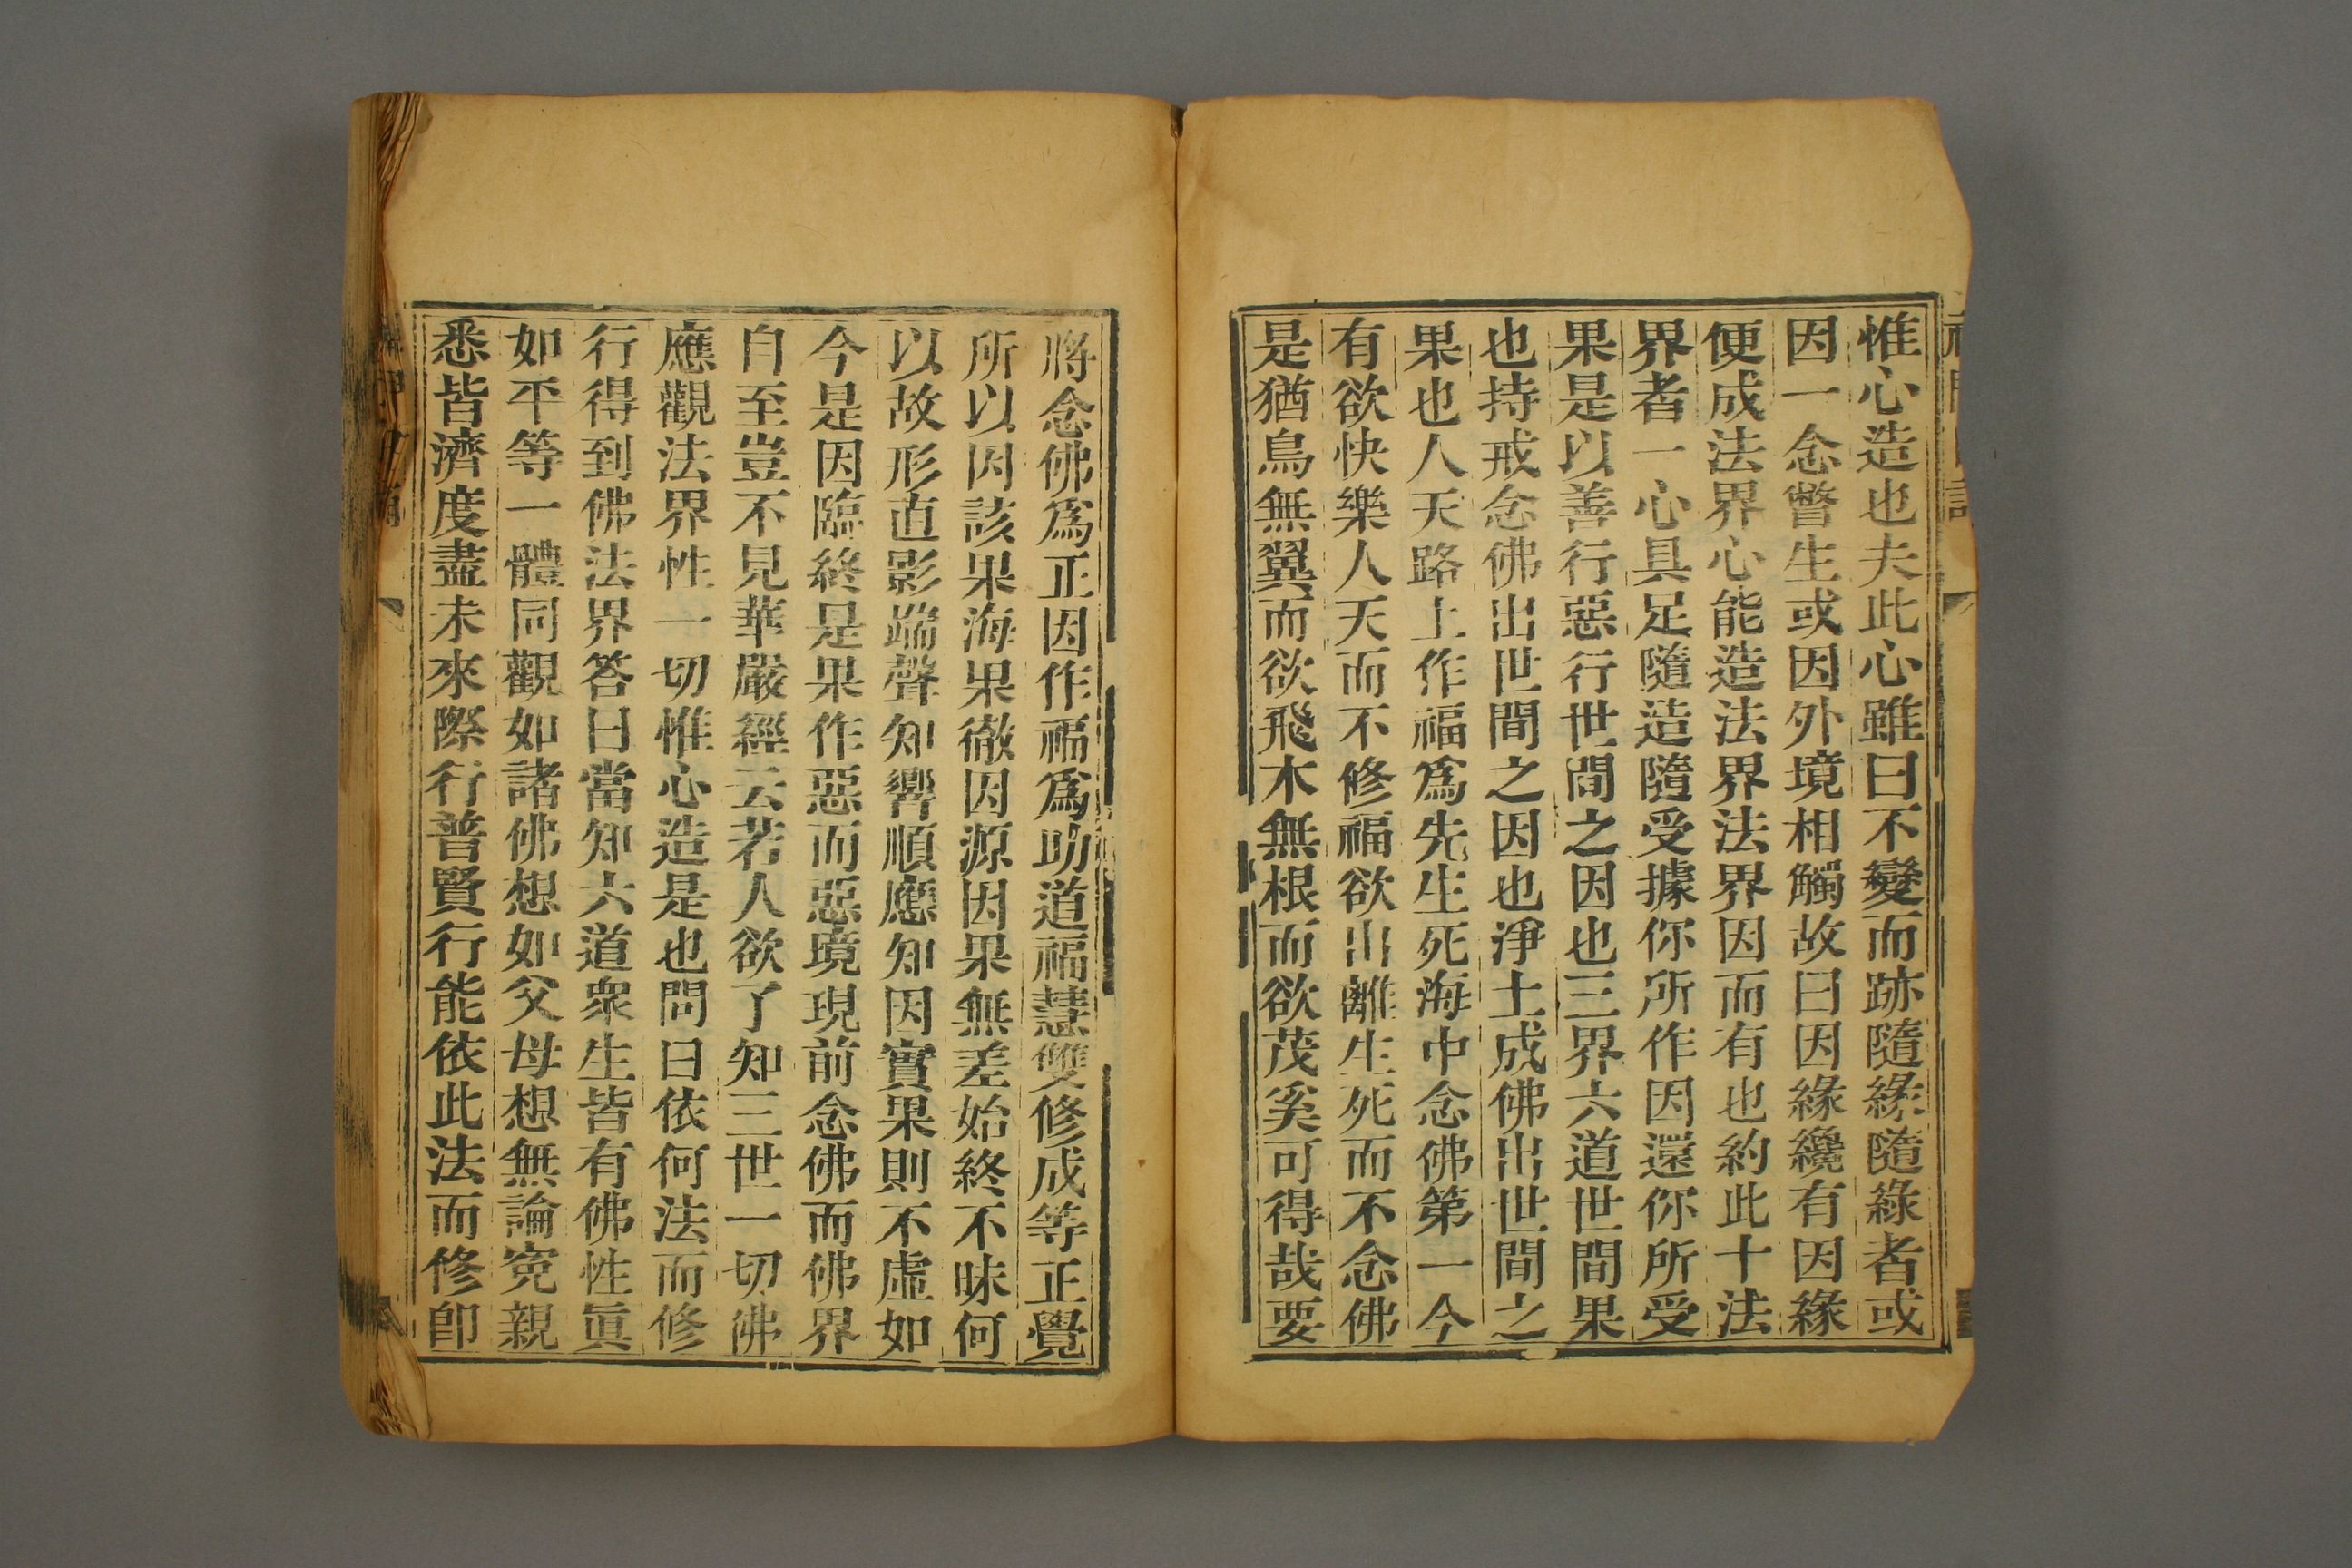 惟心造也夫此心雖曰不變而跡隨緣隨綠者或
因一念瞥生或因外境相觸故曰因緣纔有因緣
便成法界心能造法界法界因而有也約此十法
界者一心具足隨造隨受據你所作因還你所受
果是以善行惡行世間之因也三界六道世間果
也持戒念佛出世間之因也淨土成佛出世間之
果也人天路上作福爲先生死海中念佛第一今
有欲快樂人天而不修福欲出離生死而不念佛
是猶鳥無翼而欲飛木無根而欲茂奚可得哉要
將念佛爲正因作福爲助道福慧雙修成等正覺
所以因該果海果徹因源因果無差始終不昧何
以故形直影端聲知響順應知因實果則不虛如
今是因臨終是果作惡而惡境現前念佛而佛界
自至豈不見華嚴經云若人欲了知三世一切佛
應觀法界性一切惟心造是也問曰依何法而修
行得到佛法界答曰當知六道衆生皆有佛性眞
如平等一體同觀如諸佛想如父母想無論寃親
悉皆濟度盡未來際行普賢行能依此法而修卽